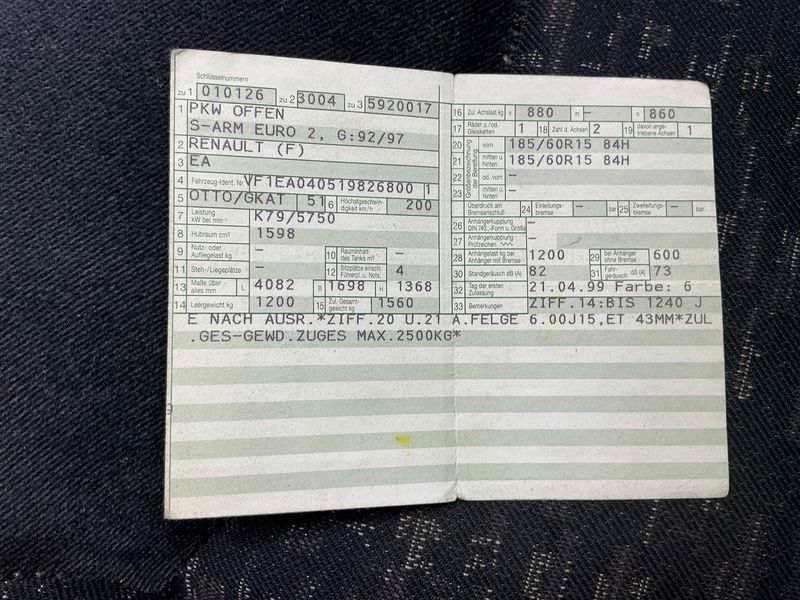 Schlüsselnummern
zu 1 010126 zu 2 3004 zu 3 5920017
1 PKW OFFEN
S-ARM EURO 2, G:92/97
2 RENAULT (F)
3 EA
4 Fahrzeug-Ident. Nr. VF1EA040519826800 1
5 OTTO/GKAT 51 6 Höchstgeschwindigkeit km/h 200
7 Leistung kW bei min⁻¹ K79/5750
8 Hubraum cm³ 1598
9 Nutz- oder Aufliegelast kg – 10 Rauminhalt des Tanks m³ –
11 Steh-/Liegeplätze – 12 Sitzplätze einschl. Führerpl. u. Nots. 4
13 Maße über alles mm L 4082 B 1698 H 1368
14 Leergewicht kg 1200 15 Zul. Gesamtgewicht kg 1560
16 Zul. Achslast kg v 880 m – h 860
17 Räder u./od. Gleisketten 1 18 Zahl d. Achsen 2 19 davon angetriebene Achsen 1
Größenbezeichnung der Bereifung
20 vorn 185/60R15 84H
21 mitten u. hinten 185/60R15 84H
22 od. vorn –
23 mitten u. hinten –
Überdruck am Bremsanschluß 24 Einleitungsbremse – bar 25 Zweileitungsbremse – bar
26 Anhängerkupplung DIN 740.., Form u. Größe –
27 Anhängerkupplung Prüfzeichen –
28 Anhängelast kg bei Anhänger mit Bremse 1200 29 bei Anhänger ohne Bremse 600
30 Standgeräusch dB (A) 82 31 Fahrgeräusch dB (A) 73
32 Tag der ersten Zulassung 21.04.99 Farbe: 6
33 Bemerkungen ZIFF.14:BIS 1240 J
E NACH AUSR.*ZIFF.20 U.21 A.FELGE 6.00J15,ET 43MM*ZUL
.GES-GEWD.ZUGES MAX.2500KG*